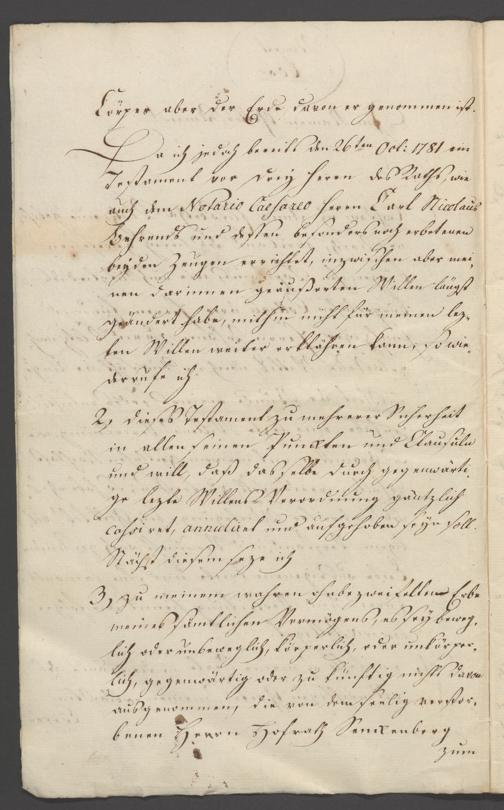 Cörper aber der Erde davon er genommen ist.
Da ich jedoch bereits den 26ten Oct. 1781 ein
Testament vor drey Herren des Raths, wie
auch dem Notario Caesareo Herrn Carl Nicolaus
Behrends und dessen besonders noch erbetenen
beyden Zeugen errichtet, inzwischen aber mei-
nen darinnen geäußerten Willen längst
geändert habe, mithin nicht für meinen lez-
ten Willen weiter erklähren kann, so wie-
derrufe ich
2, dieses Testament zu mehrerer Sicherheit
in allen seinen Puncten und Clausuln
und will, daß dasselbe durch gegenwärti-
ge lezte Willens Verordnung gäntzlich
cassiret, annuliret und aufgehoben seyn soll
Nächst diesem seze ich
3, zu meinem wahren ohnbezweifelten Erbe
meines sämtlichen Vermögens, es sey beweg-
lich oder unbeweglich, körperlich, oder unkörper-
lich, gegenwärtig oder zu künftig nichts davon
ausgenommen, die von dem seelig verstor-
benen Herrn Hofrath Senckenberg
zum